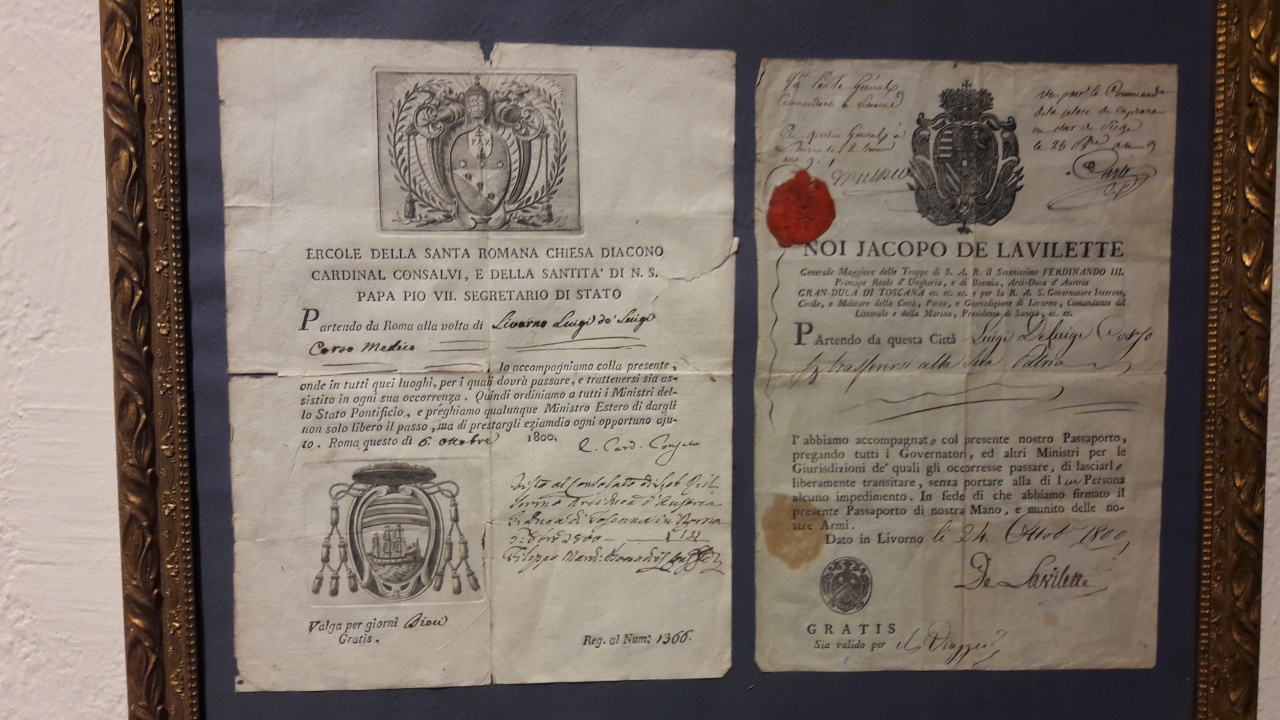 ERCOLE DELLA SANTA ROMANA CHIESA DIACONO
CARDINAL CONSALVI, E DELLA SANTITA' DI N. S.
PAPA PIO VII. SEGRETARIO DI STATO
Partendo da Roma alla volta di Livorno Luigi de' Luigi
Corso Medico
lo accompagniamo colla presente,
onde in tutti quei luoghi, per i quali dovrà passare, e trattenersi sia as-
sistito in ogni sua occorrenza. Quindi ordiniamo a tutti i Ministri del-
lo Stato Pontificio, e preghiamo qualunque Ministro Estero di dargli
non solo libero il passo, ma di prestargli eziamdio ogni opportuno aju-
to. Roma questo dì 6. ottobre 1800.
Valga per giorni Dieci
Gratis.
Reg. al Num: 1366.
NOI JACOPO DE LAVILETTE
Generale Maggiore delle Truppe di S. A. R. il Serenissimo FERDINANDO III.
Principe Reale d'Ungheria, e di Boemia, Arci-Duca d'Austria
GRAN-DUCA DI TOSCANA ec. ec. ec. e per la R. A. S. Governatore Interino,
Civile, e Militare della Città, Porto, e Giurisdizione di Livorno, Comandante del
Littorale e della Marina, Presidente di Sanità, ec. ec.
Partendo da questa Città Luigi Deluigi Corso
trasferirsi alla Sua Patria
l'abbiamo accompagnato col presente nostro Passaporto,
pregando tutti i Governatori, ed altri Ministri per le
Giurisdizioni de' quali gli occorresse passare, di lasciarlo
liberamente transitare, senza portare alla di lui Persona
alcuno impedimento. In fede di che abbiamo firmato il
presente Passaporto di nostra Mano, e munito delle no-
stre Armi.
Dato in Livorno li 24. Ottob 1800,
De Lavilette
GRATIS
Sia valido per il Viaggio